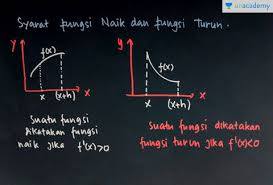 unacademy
Syarat fungsi Naik dan fungsi Turun.
y
f(x)
x
x
(x+h)
y
f(x)
x
x
(x+h)
Suatu fungsi
dikatakan fungsi
naik jika f'(x)>0
Suatu fungsi dikatakan
fungsi turun jika f'(x)<0